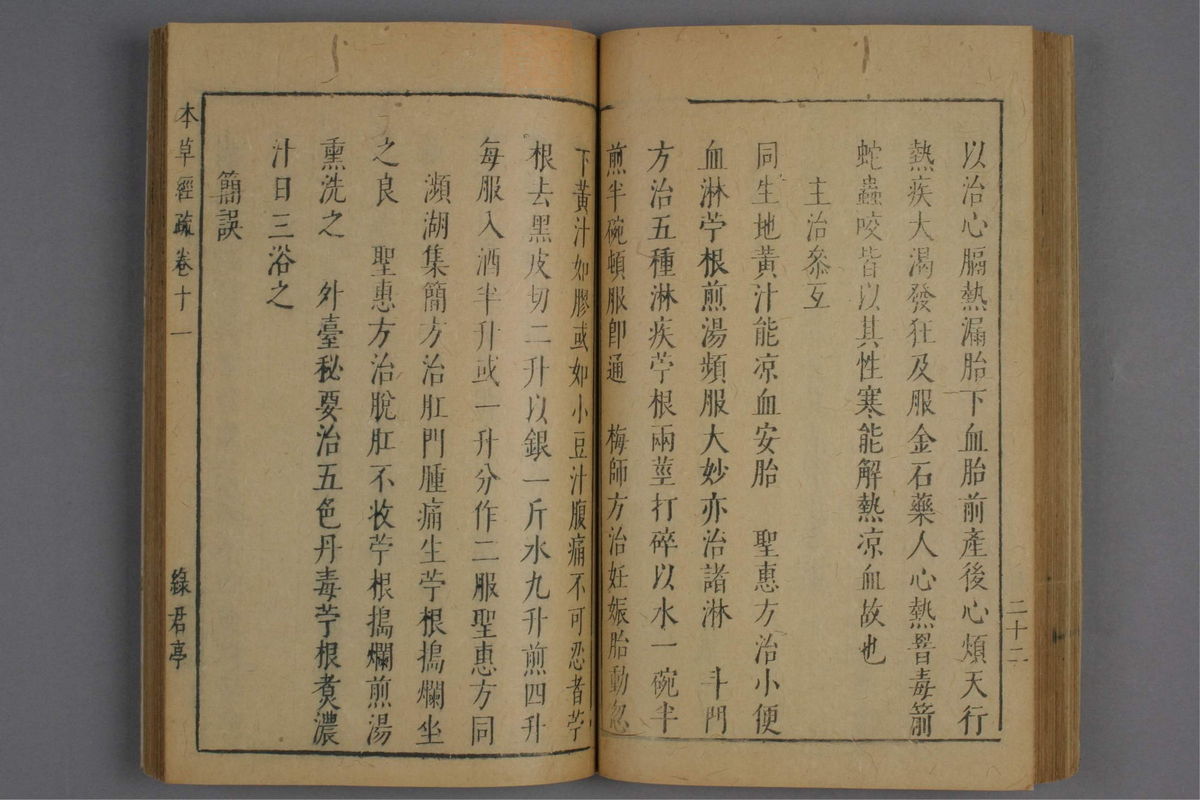 二十二
以治心膈熱漏胎下血胎前產後心煩天行
熱疾大渴發狂及服金石藥人心熱罯毒箭
蛇蟲咬皆以其性寒能解熱凉血故也
主治叅互
同生地黃汁能凉血安胎　聖惠方治小便
血淋苧根煎湯頻服大妙亦治諸淋　斗門
方治五種淋疾苧根兩莖打碎以水一碗半
煎半碗頓服卽通　梅師方治妊娠胎動忽
下黃汁如膠或如小豆汁腹痛不可忍者苧
根去黑皮切二升以銀一斤水九升煎四升
每服入酒半升或一升分作二服聖惠方同
瀕湖集簡方治肛門腫痛生苧根搗爛坐
之良　聖惠方治脫肛不收苧根搗爛煎湯
熏洗之　外臺秘要治五色丹毒苧根煑濃
汁日三浴之
簡誤
本草經疏卷十一
綠君亭